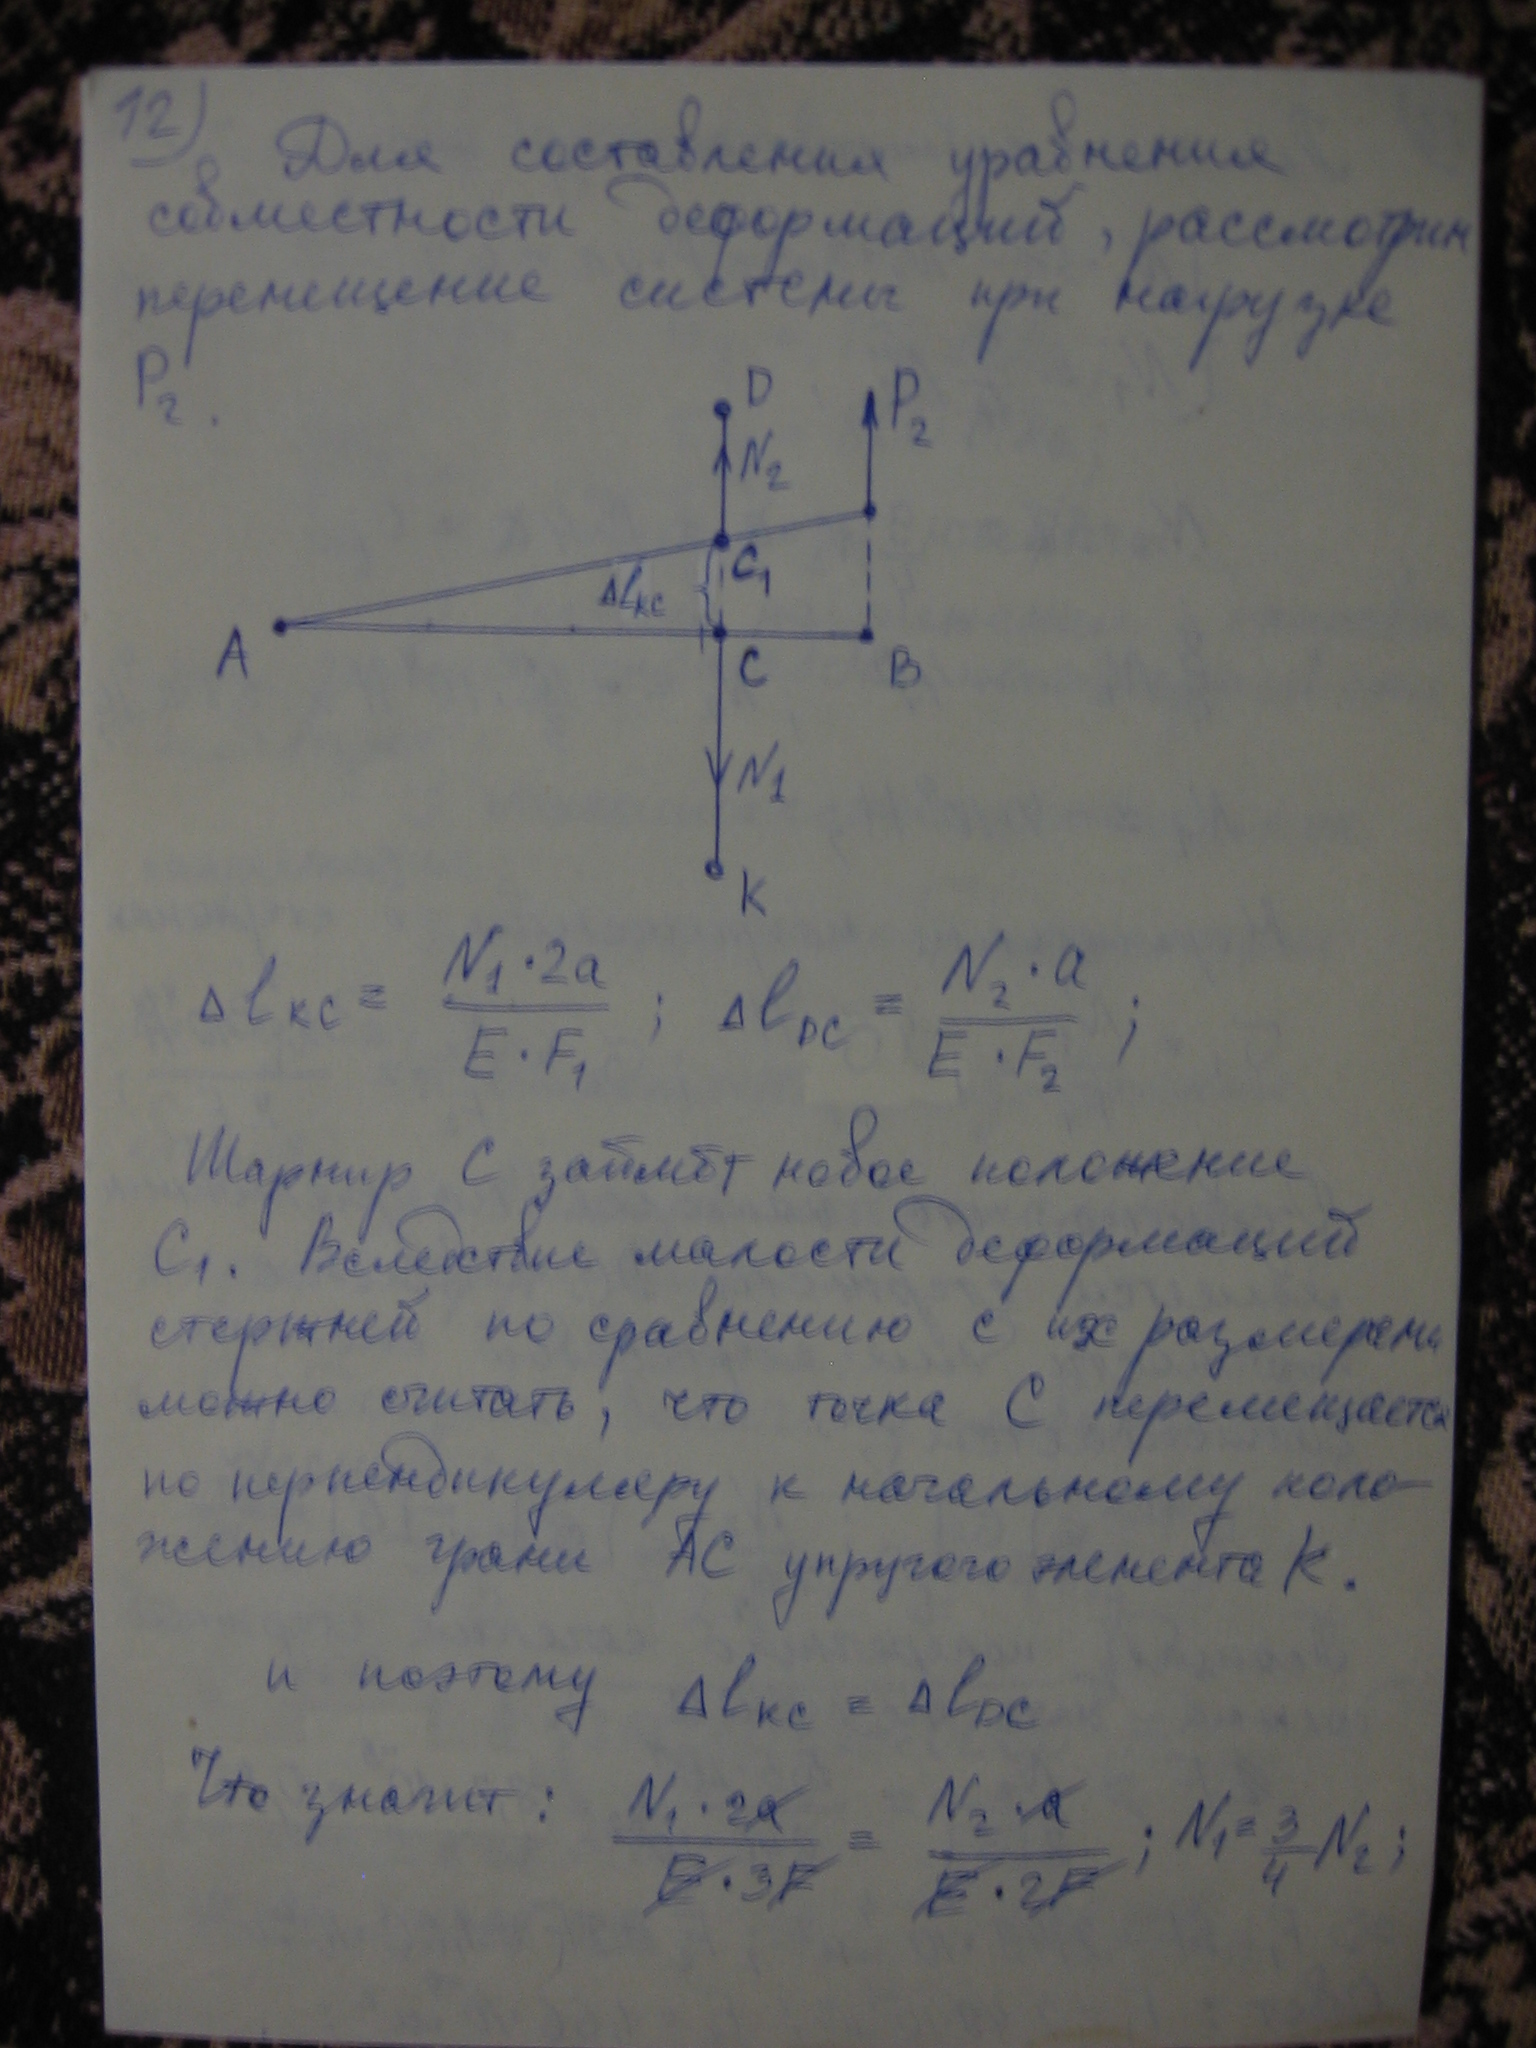 12)
Для составления уравнения
совместности деформаций, рассмотрим
перемещение системы при нагрузке
P₂.
D
P₂
N₂
C₁
Δl_KC
A
C
B
N₁
K
Δl_KC = N₁·2a / E·F₁ ; Δl_DC = N₂·a / E·F₂ ;
Шарнир C займёт новое положение
C₁. Вследствие малости деформаций
стержней по сравнению с их размерами
можно считать, что точка C перемещается
по перпендикуляру к начальному поло-
жению грани AC упругого элемента K.
и поэтому Δl_KC = Δl_DC
Что значит: N₁·2a / E·3F = N₂·a / E·2F ; N₁ = 3/4 N₂ ;